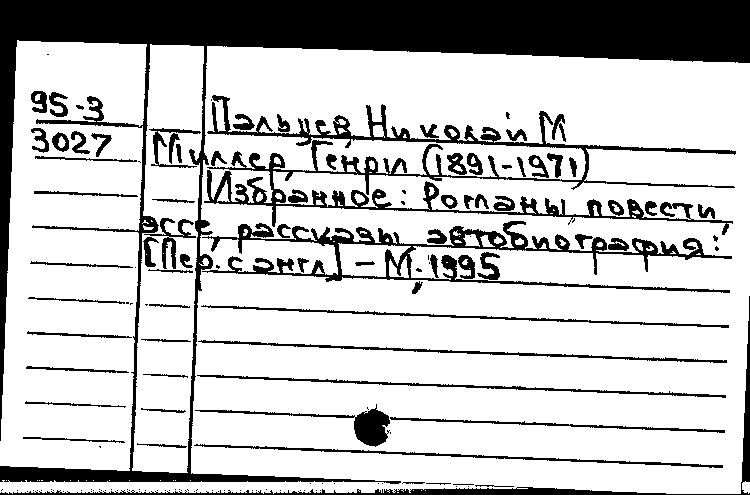 95-3 Пальцев, Николай М
3027 Миллер, Генри (1891-1971)
Избранное: Романы, повести,
эссе, рассказы автобиография:
[Пер. с англ] - М, 1995